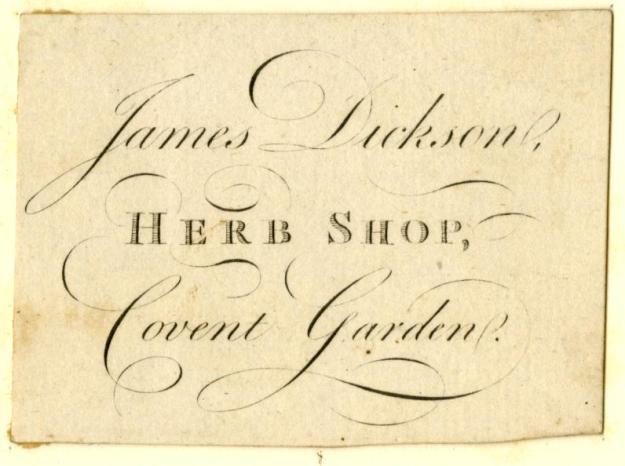 James Dickson,
HERB SHOP,
Covent Garden.